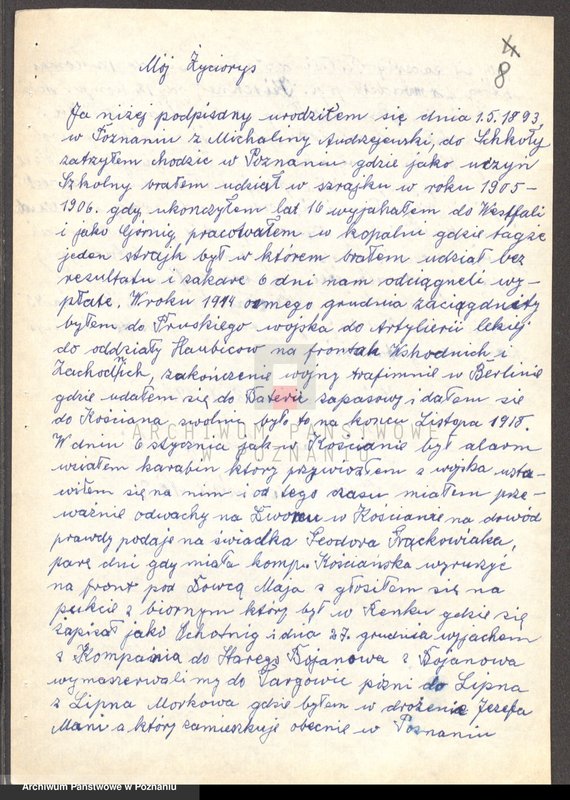 4
8
Mój Życiorys
Ja niżej podpisany urodziłem się dnia 1.5.1893,
w Poznaniu z Michaliny Andrzejewski, do Schkoły
zatrzyłem chodzic w Poznaniu gdzie jako uczyn
Szkolny brałem udział w szrajku w roku 1905-
1906. gdy ukonczyłem lat 16 wyjahałem do Westfali
i jako Gornig pracowałem w kopalni gdzie tagże
jeden strajk był w którem brałem udział bez
rezultatu i zakare 6 dni nam odciągneli wy-
płate. W roku 1914 osmego grudnia zaciągdnięty
byłem do Pruskiego wojska do Artylierii lekiej
do oddziały Haubicow na frontah Wshodnich i
Zachodnich, zakończenie wojny trafimnie w Berlinie
gdzie udałem się do Baterie zapasowy i dałem się
do Kościana zwolnic było to na koncu Listopa 1918.
W dniu 6 stycznia jak w Kościanie był alarm
wziałem karabin ktory przywiozłem z wojska usta-
wiłem się na nim i od tego czasu miałem prze-
ważnie odwachy na Dworcu w Kościanie na dowód
prawdy podaje na świadka Teodora Frąckowiaka,
parę dni gdy miała komp. Kościańska wyruszyć
na front pod Dowcą Maja z głosiłem się na
pukcie z biornym ktory był w Kenku gdzie się
zapisał jako Ochotnig i dnia 27. grudnia wyjachem
z Kompania do Starego Bojanowa z Bojanowa
wymaszerwali my do Targowic pizni do Lipna
z Lipna Morkowa gdzie byłem w drożenie Jezefa
Mani a który zamieszkuje obecnie w Poznaniu
ARCHIWUM PAŃSTWOWE
W POZNANIU
Archiwum Państwowe w Poznaniu